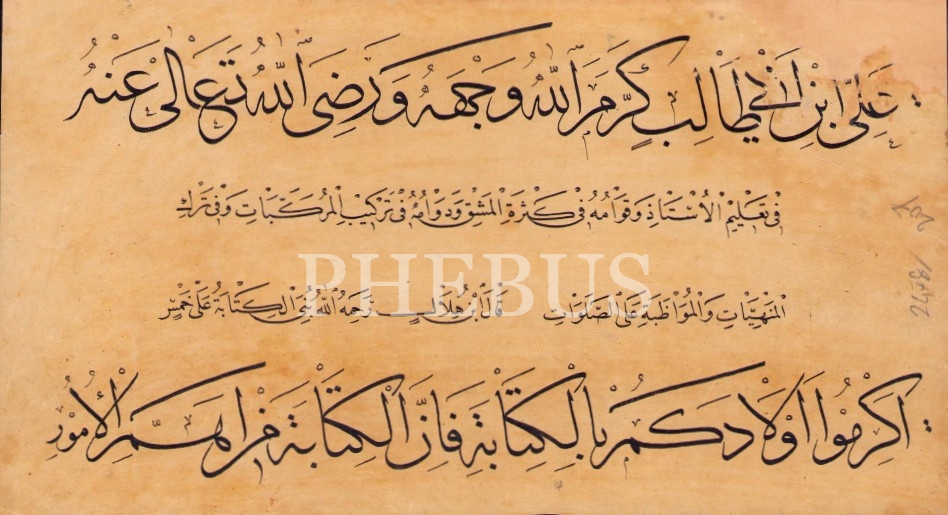 عَلِيّ ابْنِ اَبِي طَالِبْ كَرَّمَ اللّٰهُ وَجْهَهُ وَرَضِىَ اللّٰهُ تَعَالٰى عَنْهُ
فِى تَعْلِيْمِ الْاُسْتَاذِ وَقَوَامُهُ فِى كَثْرَةِ الْمَشْقِ وَدَوَامُهُ فِى تَرْكِيْبِ الْمُرَكَّبَاتِ وَفِى تَرْكِ
الْمَنْهِيَّاتِ وَالْمُوَاظَبَةِ عَلَى الصَّلَوَاتِ قَالَ ابْنُ هِلَالٍ رَحِمَهُ اللّٰهُ بُنِىَ الْكِتَابَةُ عَلٰى خَمْسٍ
PHEBUS
اَكْرِمُوا اَوْلَادَكُمْ بِالْكِتَابَةِ فَاِنَّ الْكِتَابَةَ مِنْ اَهَمِّ الْاُمُوْرِ